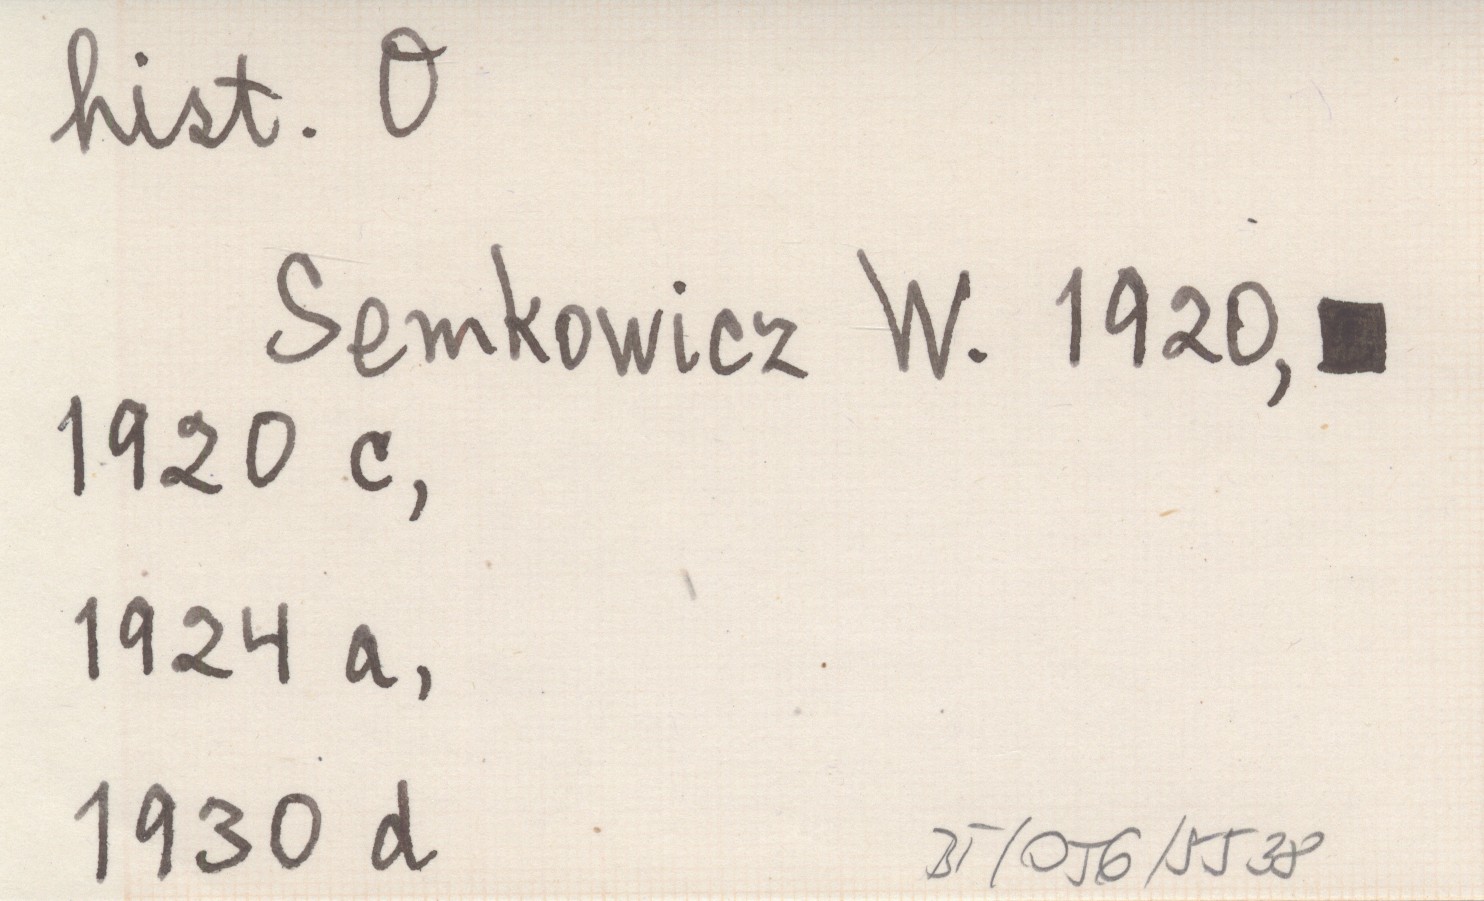 hist. O
Semkowicz W. 1920, ■
1920 c,
1924 a,
1930 d
BT/056/5538